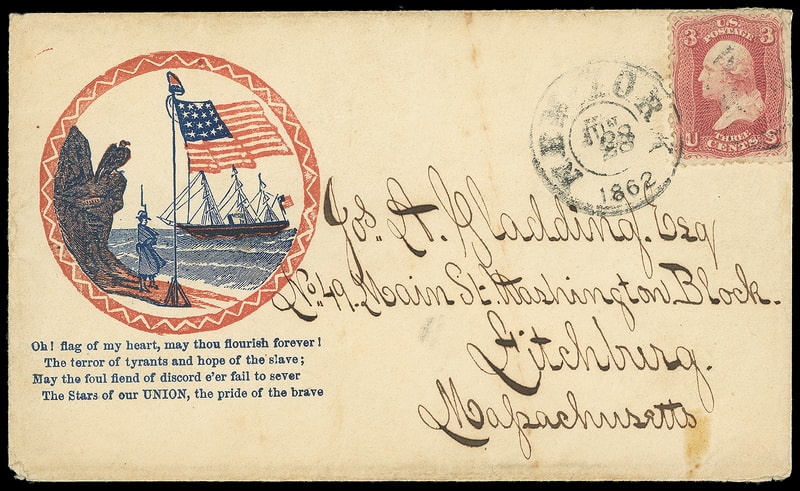 U.S.
POSTAGE
3 3
U S
THREE
CENTS
NEW YORK
28
1862
Jos. A. Gladding. Esq
No. 49. Main St. Washington Block.
Fitchburg.
Massachusetts
Oh! flag of my heart, may thou flourish forever!
The terror of tyrants and hope of the slave;
May the foul fiend of discord e'er fail to sever
The Stars of our UNION, the pride of the brave